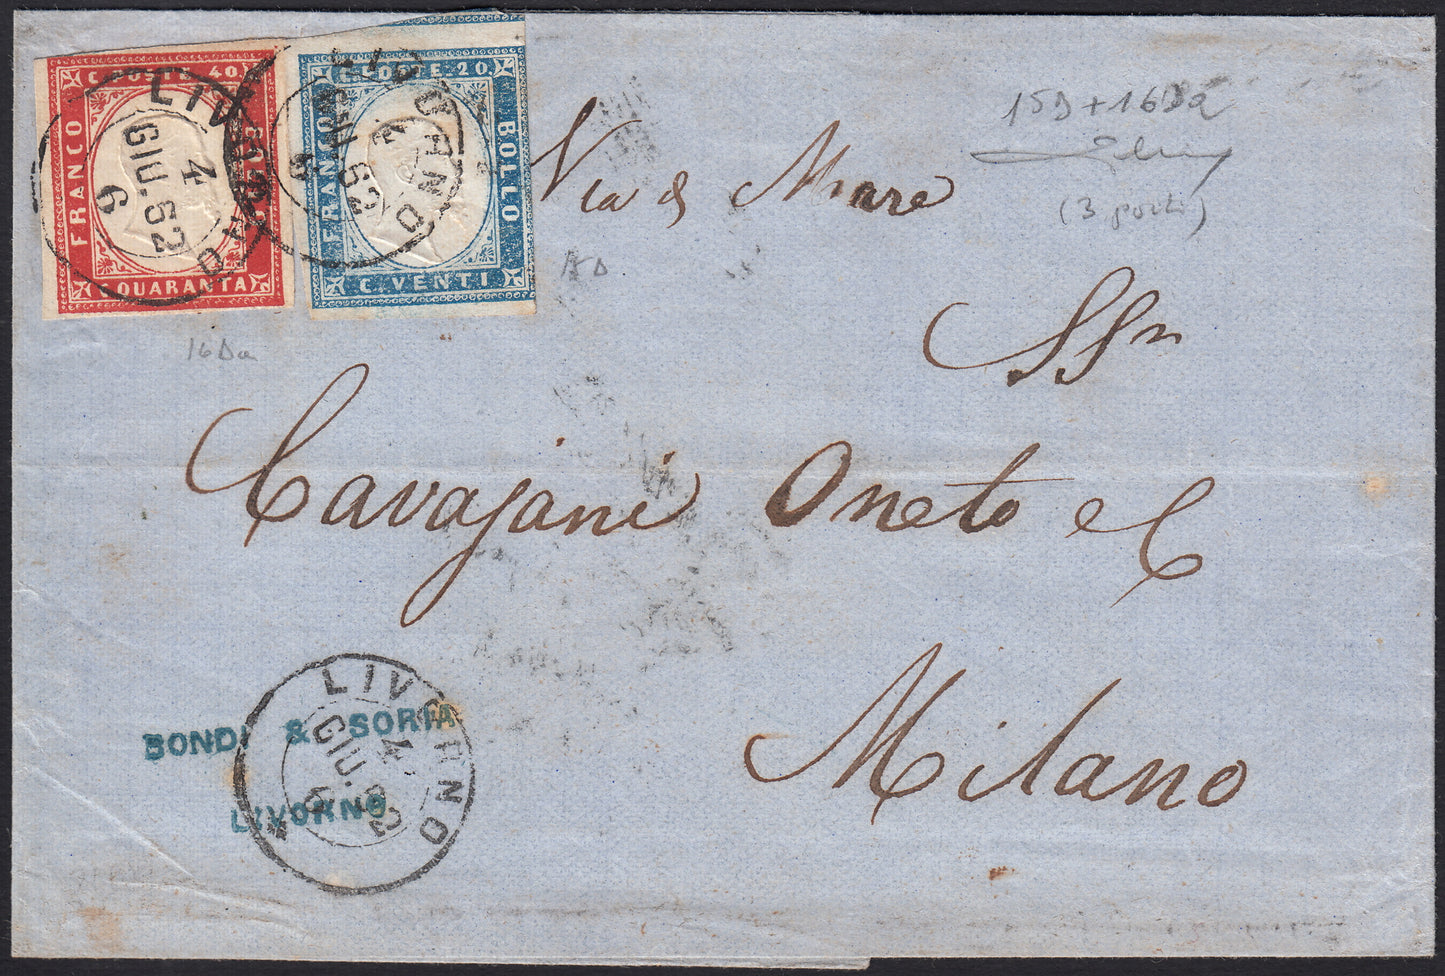 C. POSTE 40
FRANCO
BOLLO
QUARANTA
LIVORNO
4
GIU. 62
6
C. POSTE 20
FRANCO
BOLLO
C. VENTI
LIVORNO
GIU 62
15D + 16Da
(3 porti)
Via di Mare
15D
16Da
SSri
Cavajani Oneto e C
Milano
BONDI & SORIA
LIVORNO
LIVORNO
4
GIU. 62